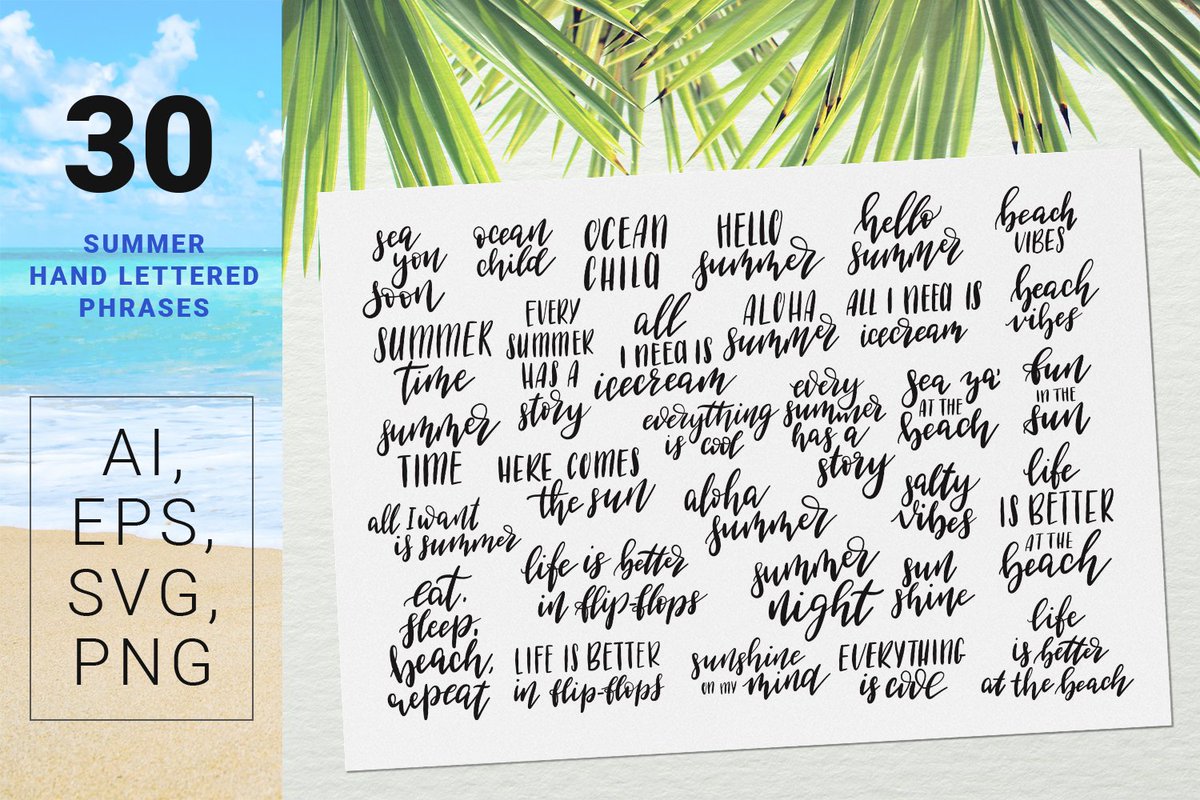 30
SUMMER
HAND LETTERED
PHRASES
AI,
EPS,
SVG,
PNG
sea
you
soon
ocean
child
OCEAN
CHILD
HELLO
summer
hello
summer
beach
VIBES
SUMMER
time
EVERY
SUMMER
HAS A
story
all
I NEED IS
icecream
ALOHA
summer
ALL I NEED IS
icecream
beach
vibes
summer
TIME
HERE COMES
the sun
everything
is cool
every
summer
has a
story
sea ya'
AT THE
beach
fun
IN THE
sun
all I want
is summer
aloha
summer
salty
vibes
life
IS BETTER
AT THE
beach
eat.
sleep.
beach.
repeat
life is better
in flip-flops
summer
night
sun
shine
life
is better
at the beach
LIFE IS BETTER
in flip-flops
sunshine
on my mind
EVERYTHING
is cool